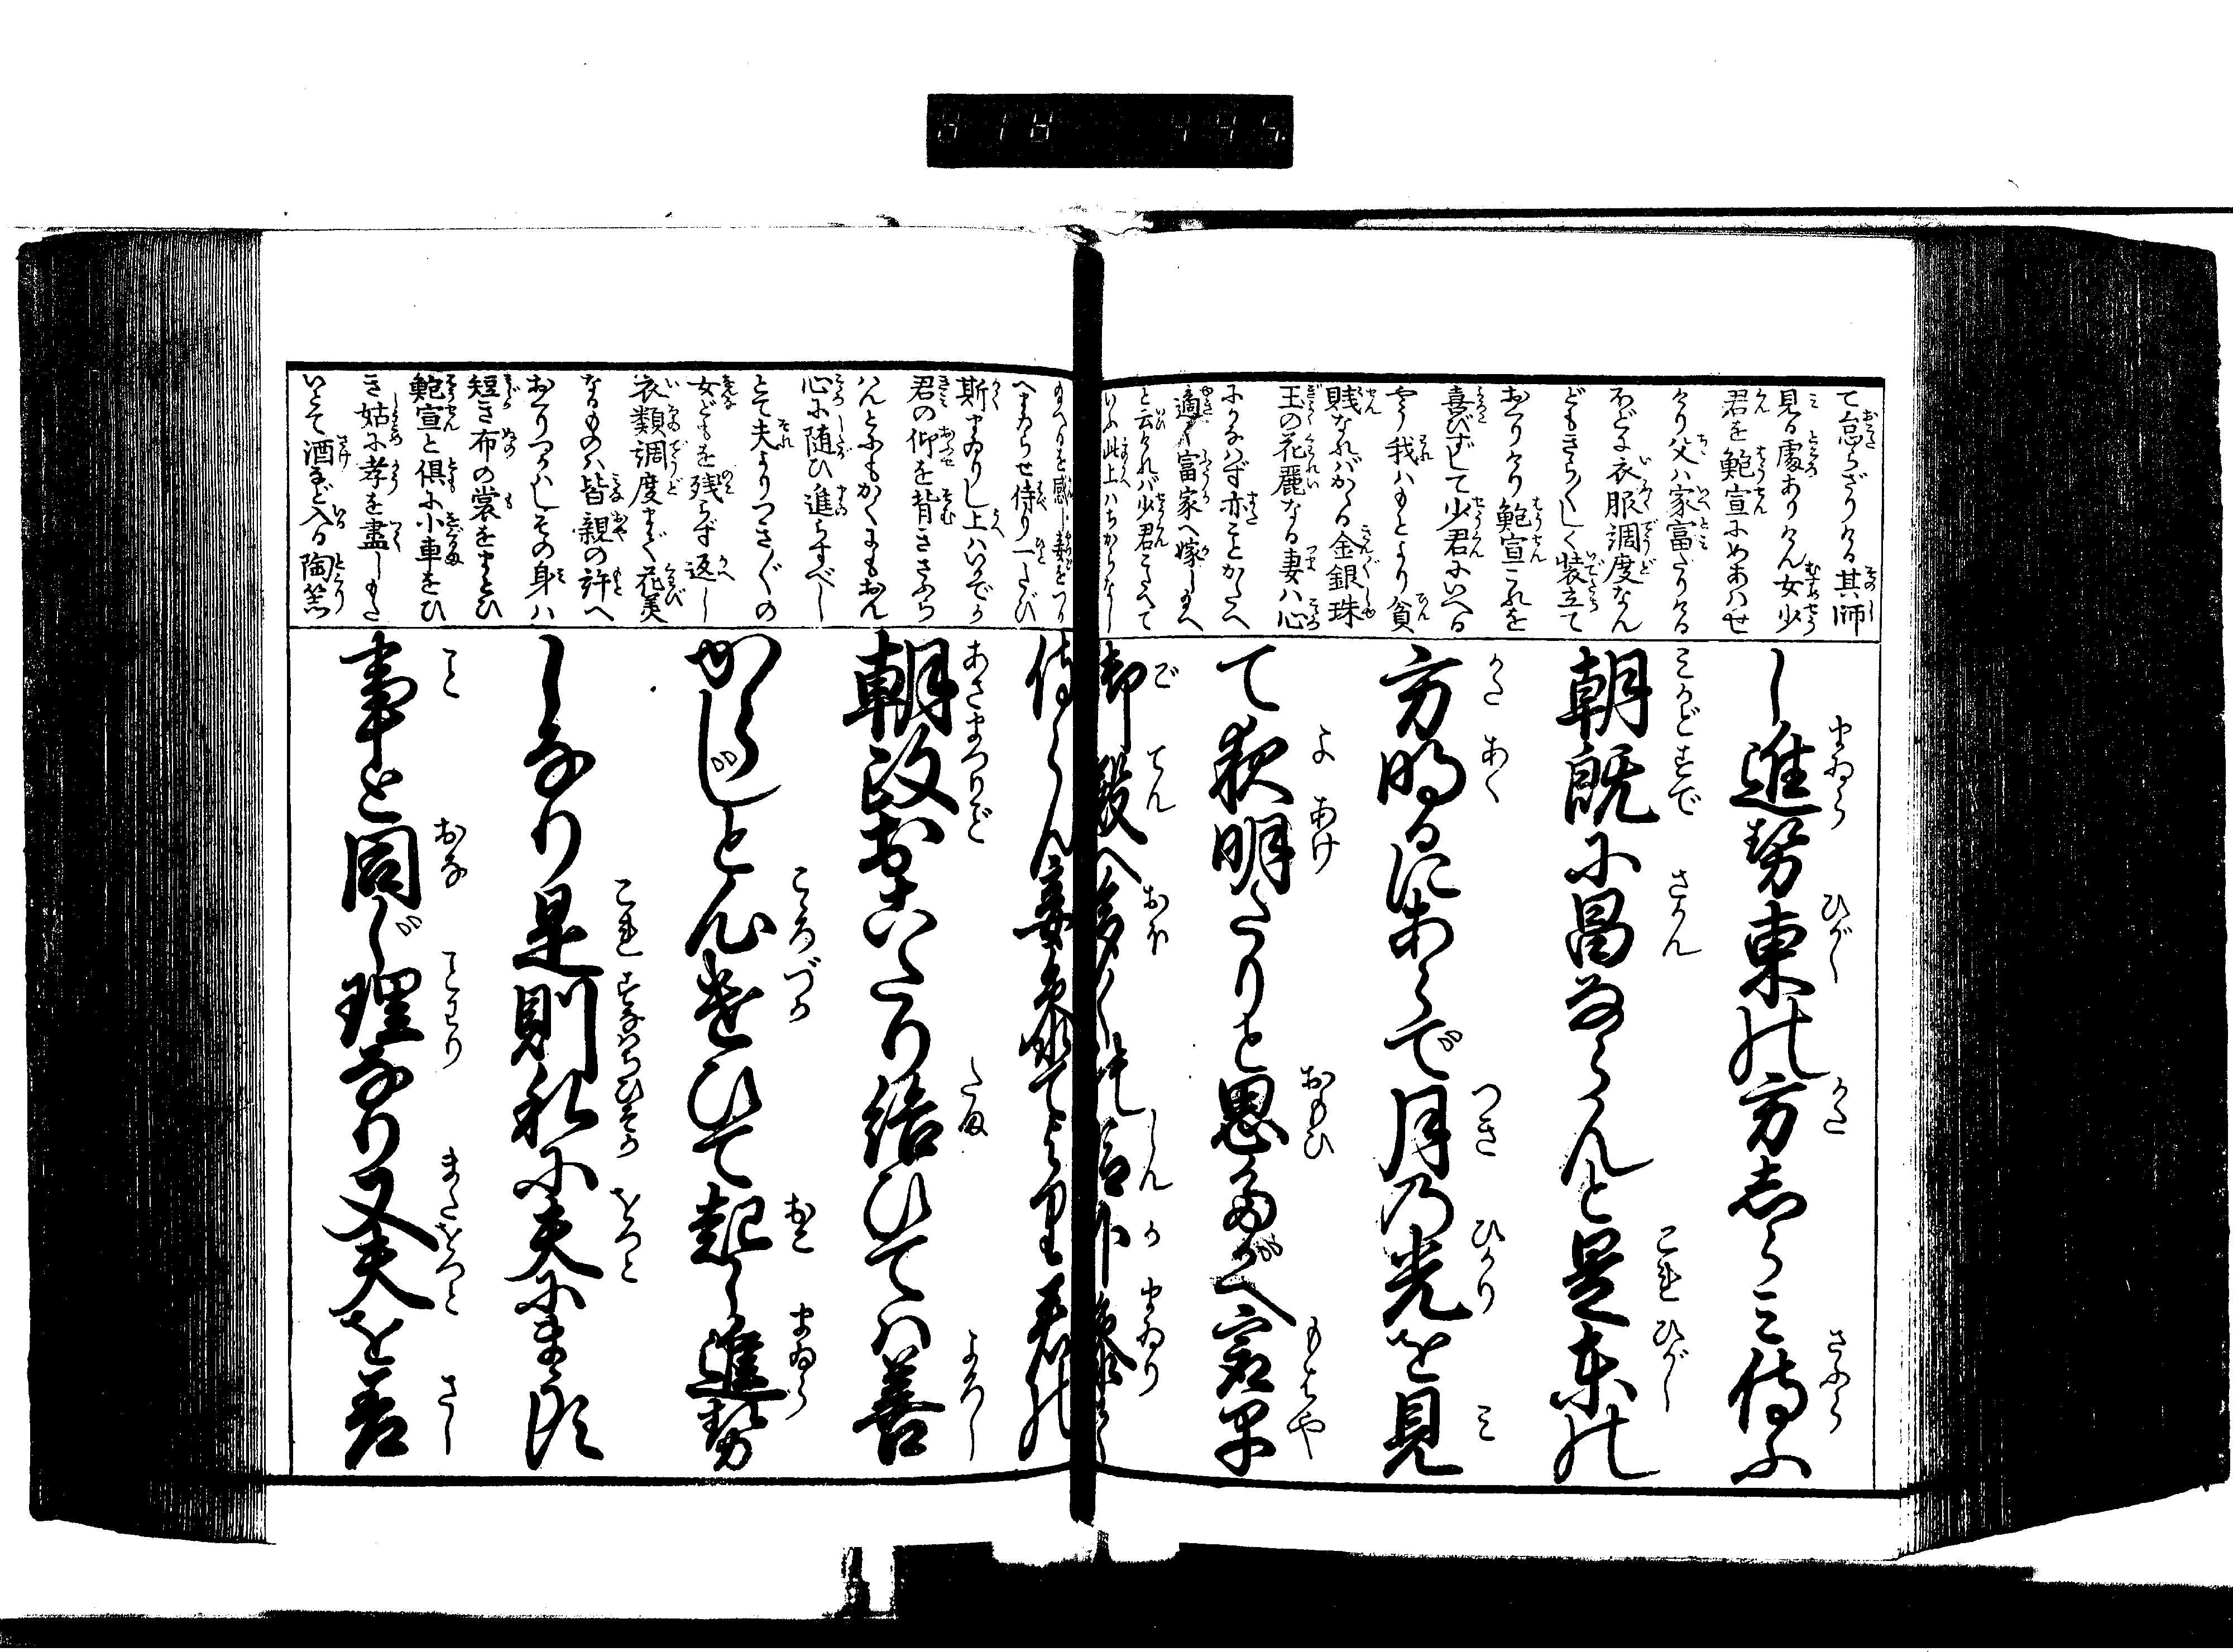 て怠らざりける其師
見る處ありけん女少
君を鮑宣にめあハせ
けり父ハ家富たりける
ほどに衣服調度なん
どもきら〳〵しく装立て
おくりけり鮑宣これを
喜びずして少君にいへる
やう我ハもとより貧
賤なれバかゝる金銀珠
玉の花麗なる妻ハ心
にかなハず亦ことかたへ
適く富家へ嫁し給へ
と云けれバ少君こたへて
いふ此上ハちからなし
へまゐらせ侍り一たび
斯まゐりし上ハいかでか
君の仰を背きさふら
ハんともかくにもおん
心に随ひ進らすべし
とて夫よりつき〴〵の
女どもを残らず返し
衣類調度まで花美
なるものハ皆親の許へ
おくりつかハしその身ハ
短き布の裳をまとひ
鮑宣と倶に小車をひ
き姑に孝を盡しもた
いとて酒など入る陶器
し進勢東の方志らミ侍ふ
朝既に昌ならんと是東の
方明るにあらで月乃光を見
て夜明たりと思たがへ最早
御殿へ多く臣下参りて
侍らん妾象てより君の
朝政おこたり給ひてハ善
からじと心遣ひて起し進勢
しなり是則私に夫にまみ
事と同じ理なり又夫を差